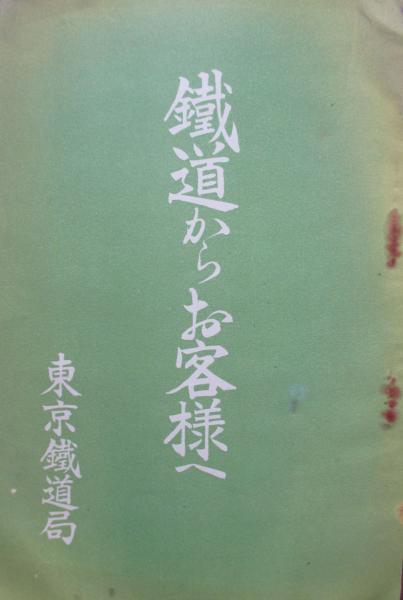 鐵道からお客様へ
東京鐵道局